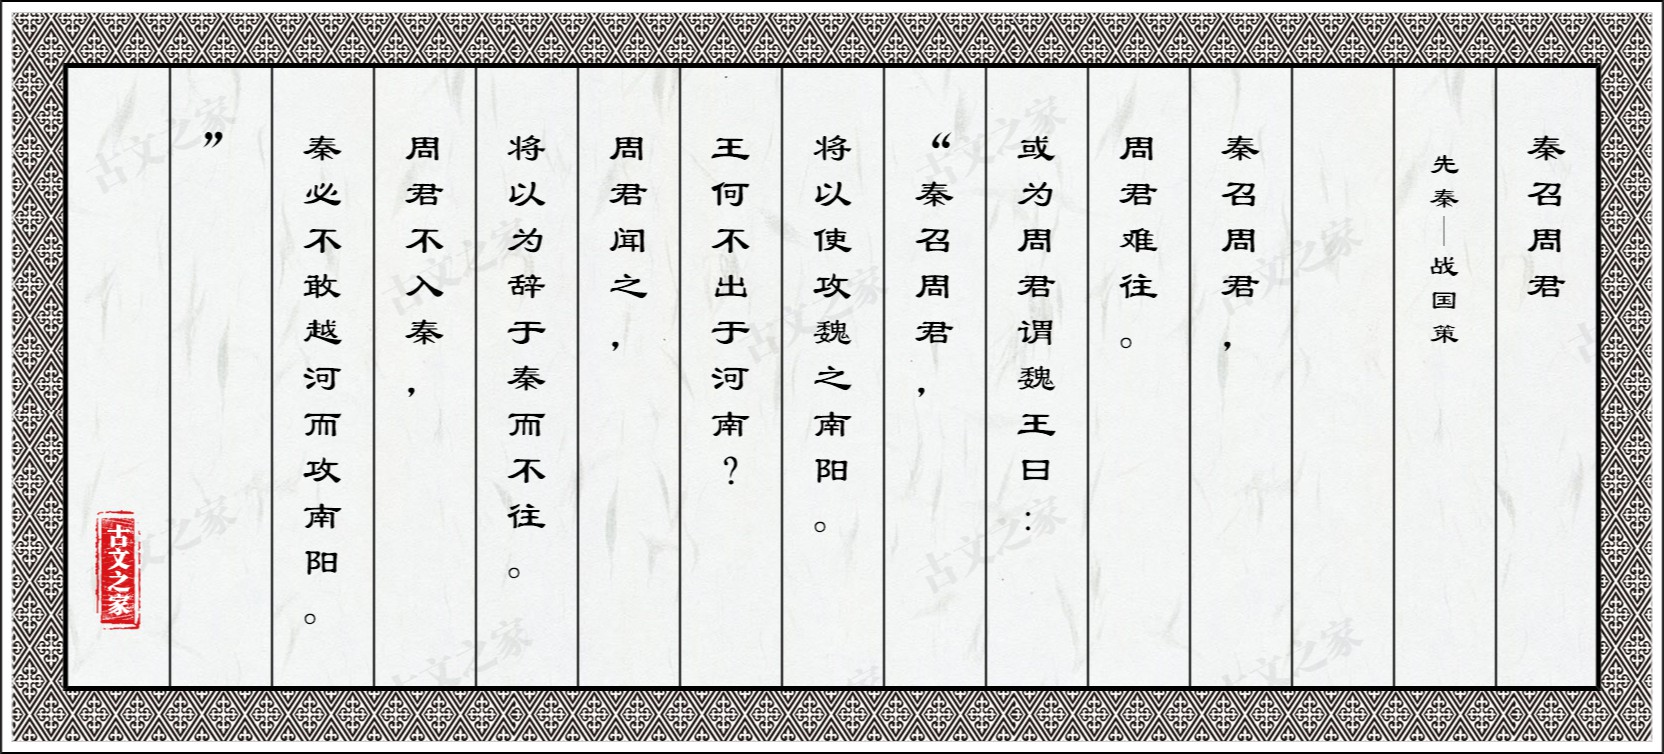 秦召周君
先秦—战国策
秦召周君，
周君难往。
或为周君谓魏王曰：
“秦召周君，
将以使攻魏之南阳。
王何不出于河南？
周君闻之，
将以为辞于秦而不往。
周君不入秦，
秦必不敢越河而攻南阳。
”
古文之家